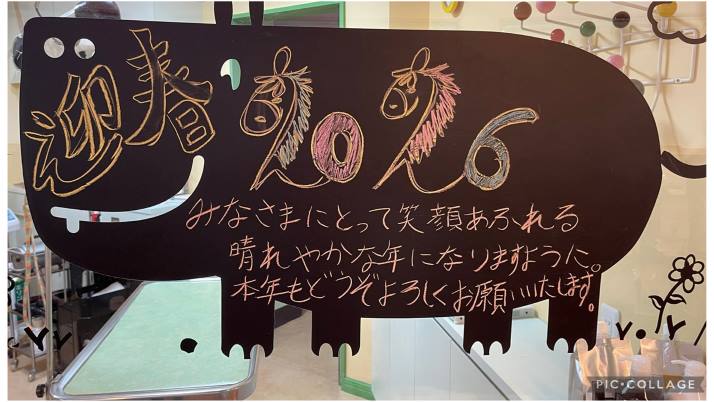 迎春 2026
みなさまにとって笑顔あふれる
晴れやかな年になりますように。
本年もどうぞよろしくお願いいたします。
PIC•COLLAGE